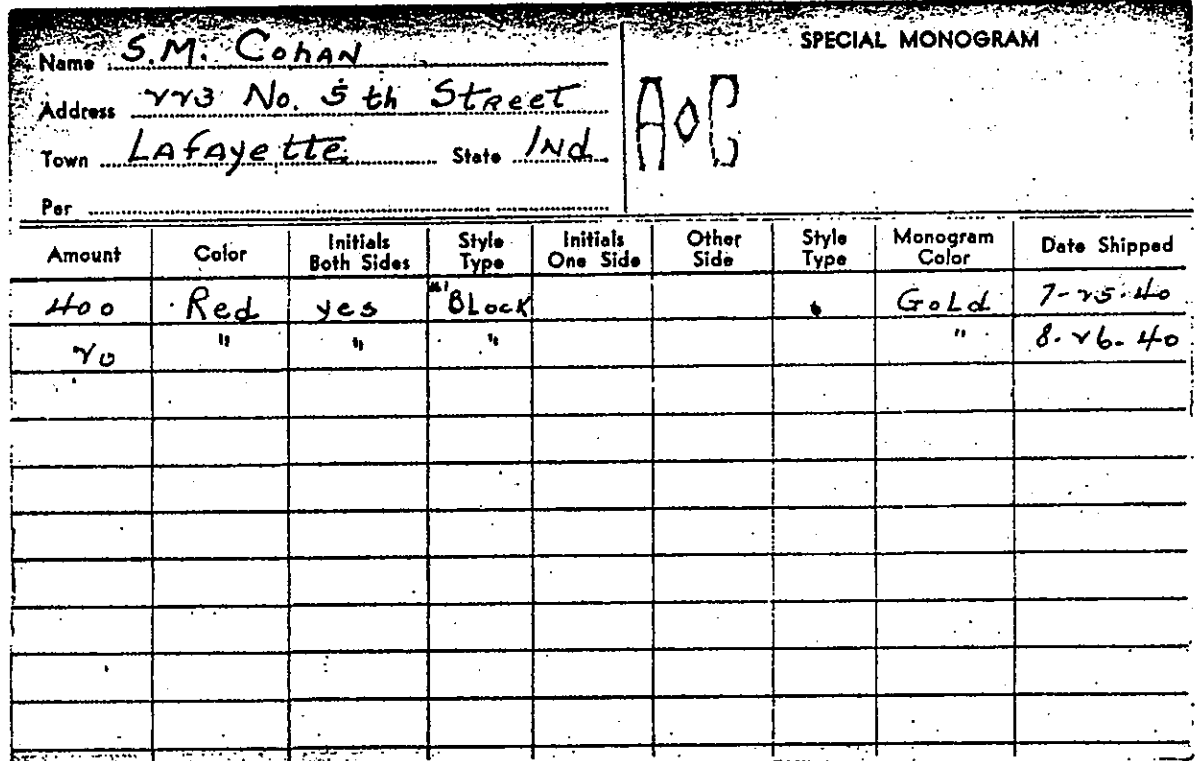 SPECIAL MONOGRAM
Name S.M. Cohan
Address 223 No. 5th Street
Town Lafayette State Ind.
Per
A◊C
Amount Color Initials Both Sides Style Type Initials One Side Other Side Style Type Monogram Color Date Shipped
400 Red yes #1 Block Gold 7-25-40
20 " " " " 8-26-40